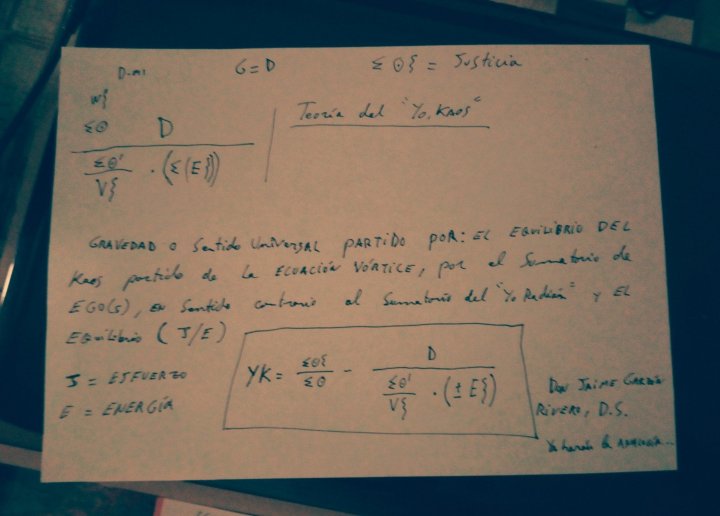 G = D
Σ Θ ξ = Justicia
Teoría del "Yo, KAOS"
ΣΘ D
ΣΘ' / Vξ · (Σ(Eξ))
GRAVEDAD o Sentido Universal PARTIDO POR: EL EQUILIBRIO DEL
Kaos partido de la ECUACIÓN VÓRTICE, por el Sumatorio de
EGO(s), en Sentido contrario al Sumatorio del "Yo Radian" y EL
Equilibrio (J/E)
J = ESFUERZO
E = ENERGÍA
YK = ΣΘξ / ΣΘ - D / (ΣΘ' / Vξ · (± Eξ))
Don JAIME GARZÓN
RIVERO, D.S.
Ya haréis la ANALOGÍA...